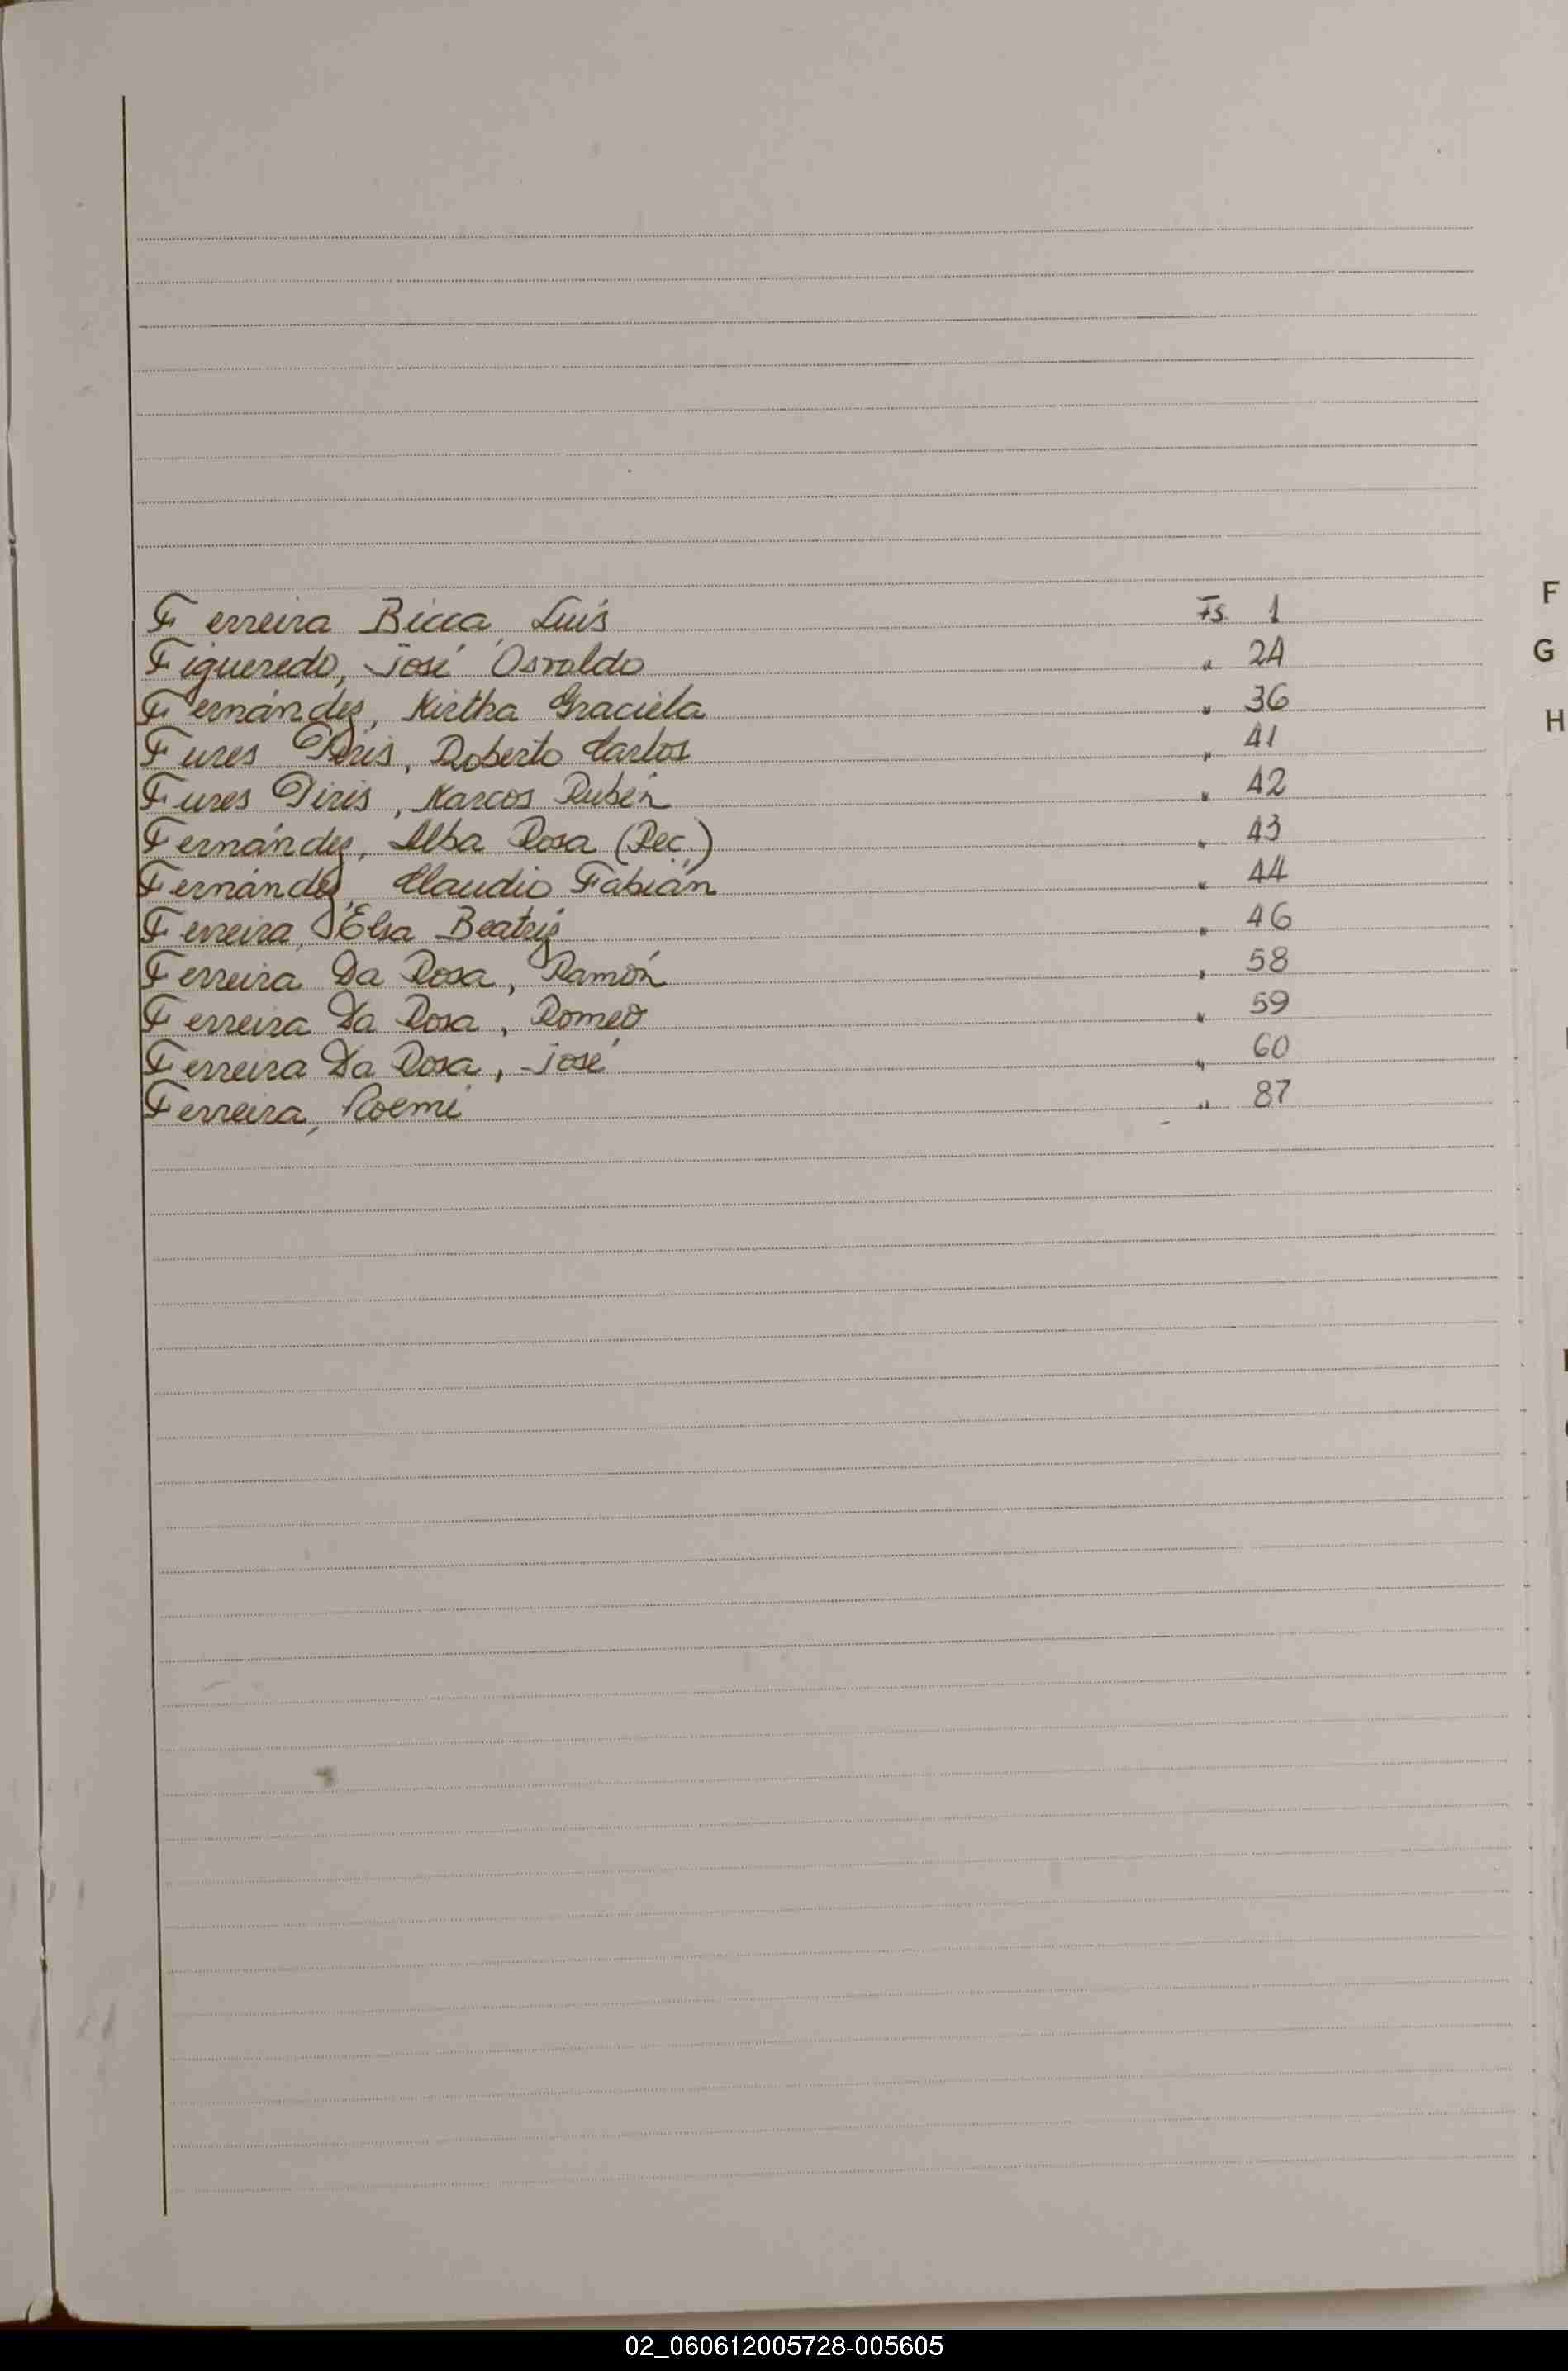 Ferreira Bicca, Luis Fs. 1
Figueredo, José Osvaldo " 24
Fernández, Mirtha Graciela " 36
Funes Piris, Roberto Carlos " 41
Funes Piris, Marcos Rubén " 42
Fernández, Alba Rosa (Rec.) " 43
Fernández, Claudio Fabián " 44
Ferreira, Elsa Beatriz " 46
Ferreira Da Rosa, Ramón " 58
Ferreira Da Rosa, Romeo " 59
Ferreira Da Rosa, José " 60
Ferreira, Noemi " 87
F
G
H
02_060612005728-005605